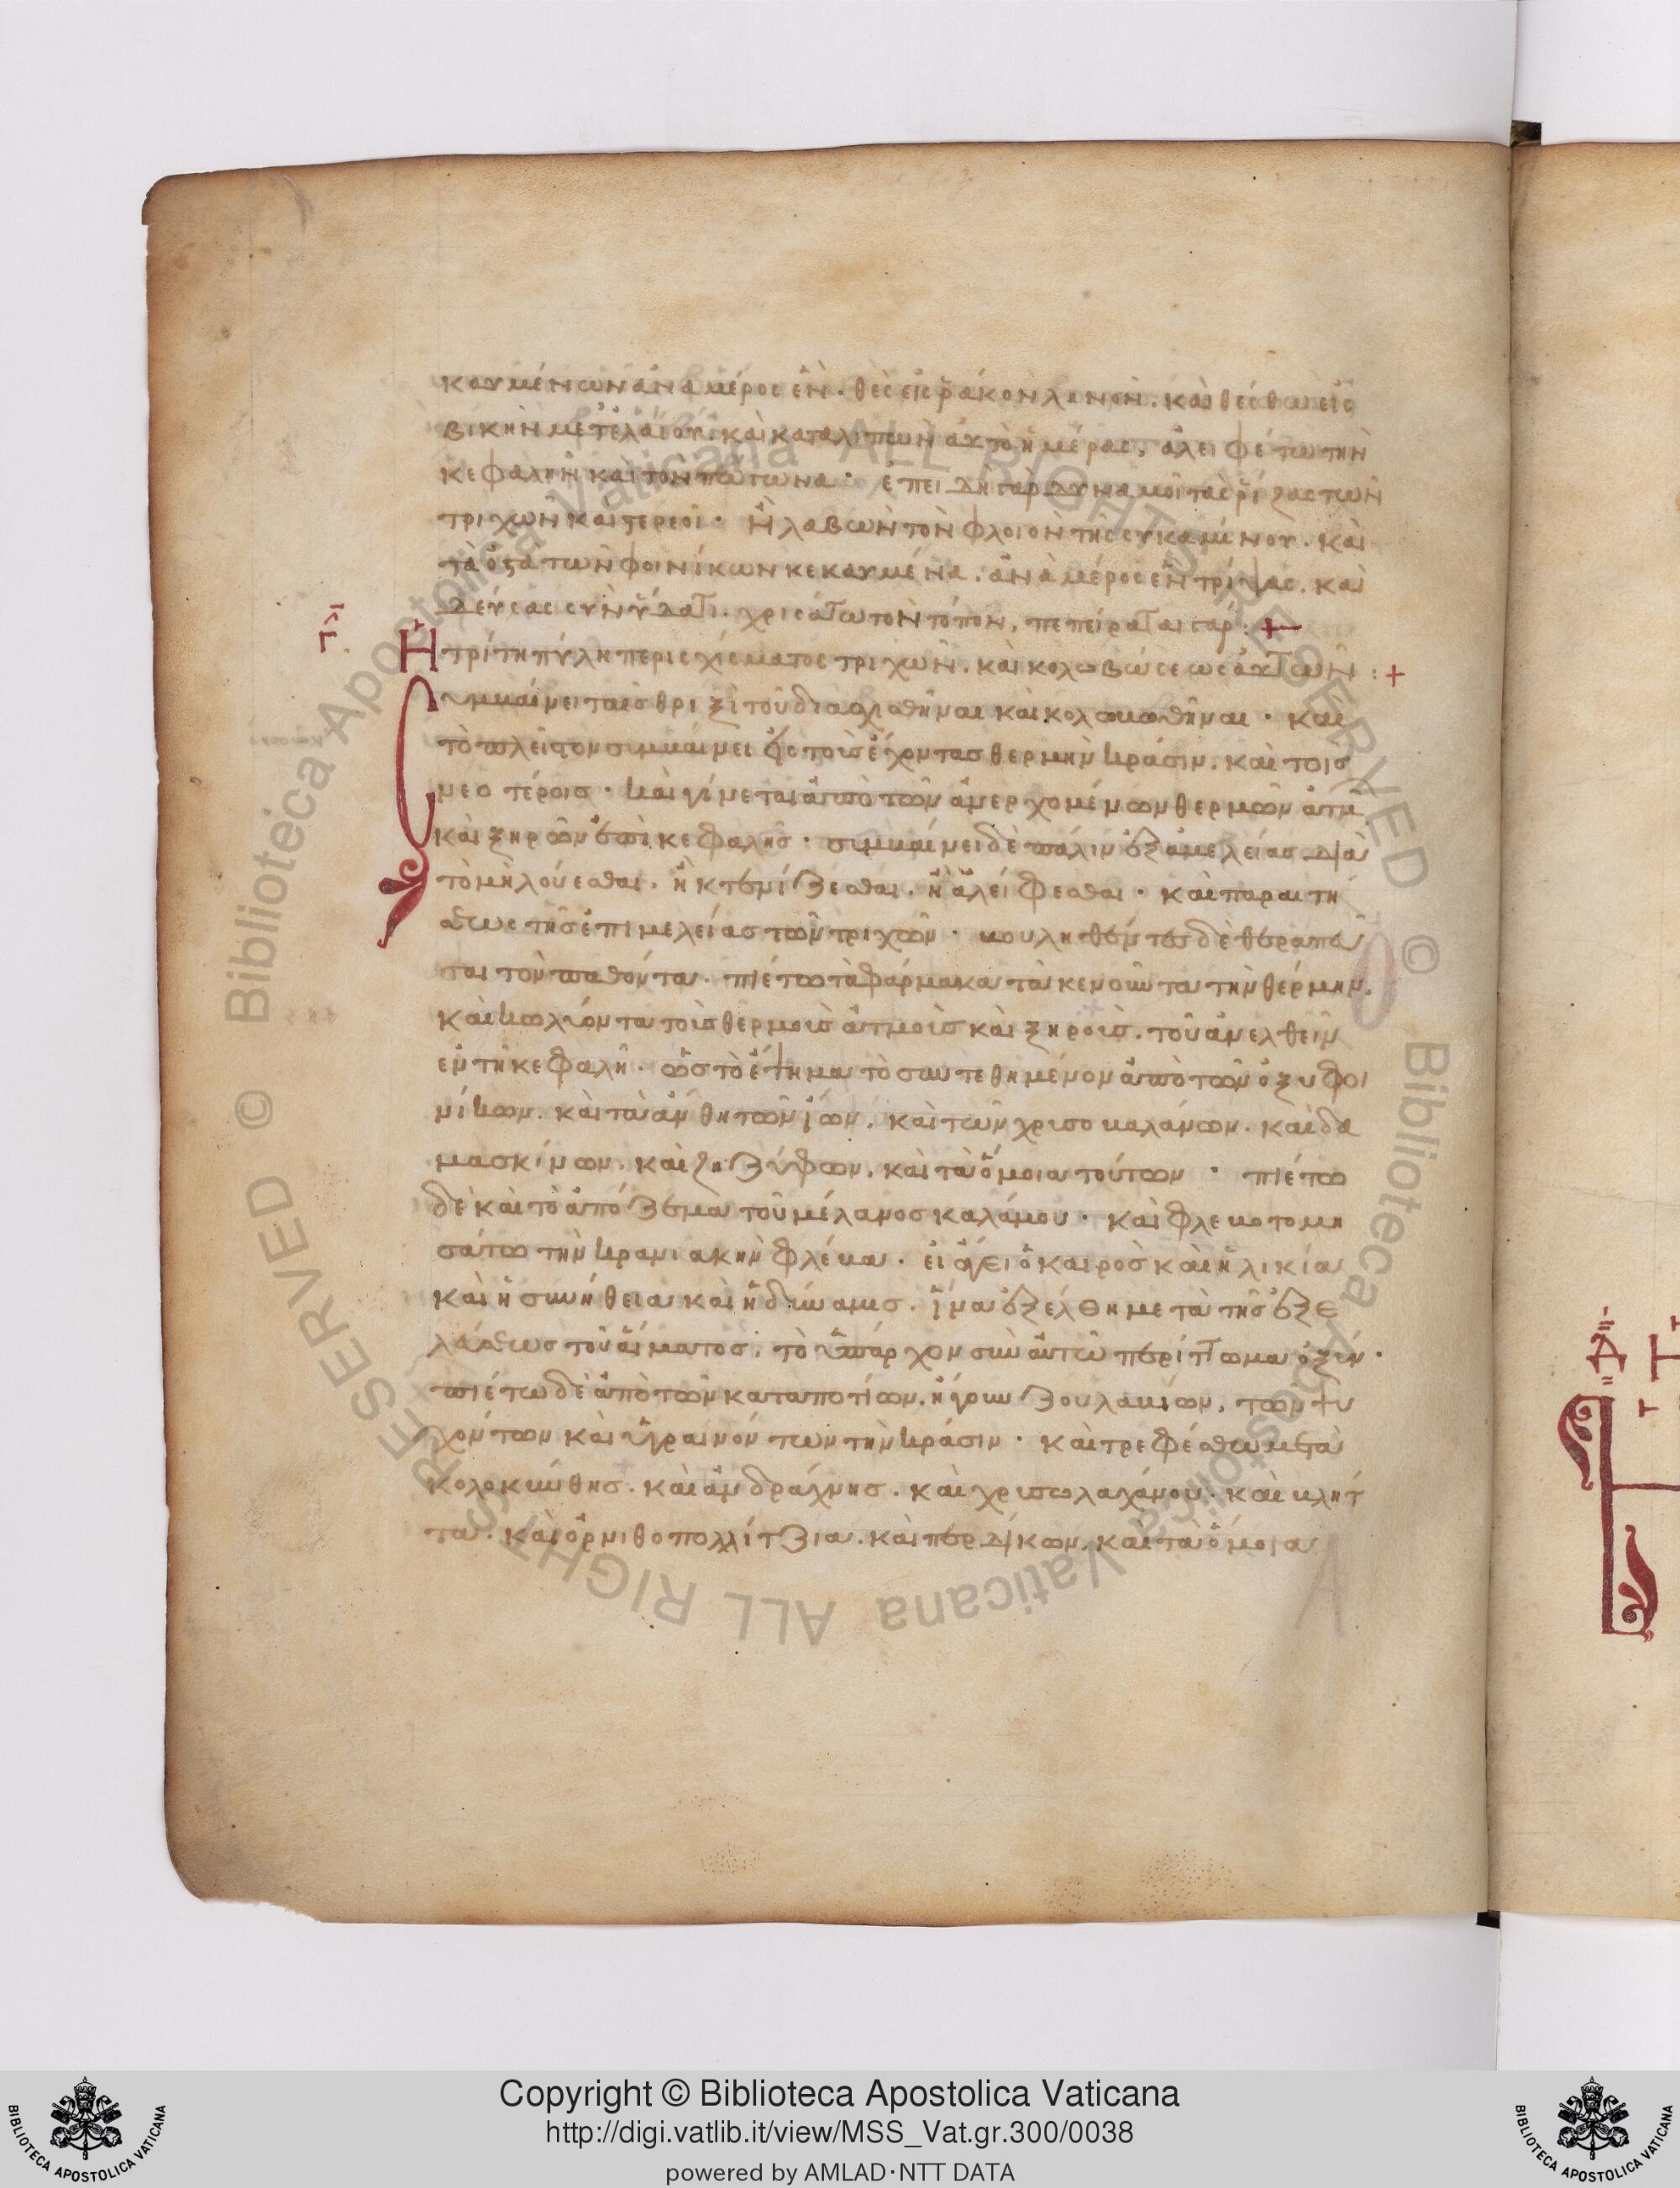 καυμένων ἀνὰ μέρος ἓν· θὲς εἰς ῥάκον ληνὸν. καὶ θέσθω εἰς
βικὴν μετ' ἐλαίου· καὶ καταλιπὼν αὐτὸ ἡμέρας, ἀλειφέτω τὴν
κεφαλὴν καὶ τὸν πώγωνα· ἐπειδὴ γὰρ δυναμοῖ τὰς ῥίζας τῶν
τριχῶν καὶ στερεοῖ· Ἢ λαβὼν τὸν φλοιὸν τῆς συκαμίνου. καὶ
τὰ ὀστὰ τῶν φοινίκων κεκαυμένα. ἀνὰ μέρος ἓν τρίψας. καὶ
δεύσας σὺν ὕδατι. χρισάτω τὸν τόπον, πεπείραται γάρ: +
γ
Ἡ τρίτη πύλη περὶ σχίσματος τριχῶν. καὶ κολωβώσεως αὐτῶν: +
Συμβαίνει ταῖς θριξὶ τοῦ διασχισθῆναι καὶ κολωβωθῆναι· καὶ
τὸ πλεῖστον συμβαίνει εἰς τοὺς ἔχοντας θερμὴν κράσιν. καὶ τοῖς
νεοτέροις· καὶ γίνεται ἀπὸ τῶν ἀνερχομένων θερμῶν ἀτμ
καὶ ξηρῶν ἐπὶ κεφαλῆς· συμβαίνει δὲ πάλιν ἐξ ἀμελείας διὰ
τὸ μὴ λούεσθαι. ἢ κτενίζεσθαι. ἢ ἀλείφεσθαι· καὶ παραιτή
σεως τῆς ἐπιμελείας τῶν τριχῶν· βουληθέντες δὲ θεραπεῦ
σαι τὸν παθόντα. πιέτω τὰ φάρμακα τὰ κενοῦντα τὴν θέρμην.
καὶ κωλύοντα τοῖς θερμοῖς ἀτμοῖς καὶ ξηροῖς. τοῦ ἀνελθεῖν
ἐν τῇ κεφαλῇ. ὡς τὸ ἔψημα τὸ συντεθημένον ἀπὸ τῶν ὀξυφοι
νίκων. καὶ τὰ ἄνθη τῶν ἴων. καὶ τῶν χρισοβαλάνων. καὶ δα
μασκίνων. καὶ ζηζύφων. καὶ τὰ ὅμοια τούτων· πιέτω
δὲ καὶ τὸ ἀπόζεμα τοῦ μέλανος καλάμου· καὶ φλεβοτομη
σάτω τὴν κρανιακὴν φλέβα. εἰ ἄγει ὁ καιρὸς καὶ ἡ λικία
καὶ ἡ συνήθεια καὶ ἡ δύναμις. ἵνα ἐξέλθη μετὰ τῆς ἐξε
λάσεως τοῦ αἵματος, τὸ ὑπάρχον σὺν αὐτῶ περίττωμα ὀξύν·
πιέτω δὲ ἀπὸ τῶν καταποτίων, ἤγουν ζουλακίων, τῶν ψυ
χόντων καὶ ὑγραινόντων τὴν κράσιν· καὶ τρεφέσθω μετὰ
κολοκύνθης. καὶ ἀνδράχνης. καὶ χρισολαχάνου. καὶ βλητ
τα. καὶ ὀρνιθοπολλίτζια. καὶ περδίκων. καὶ τὰ ὅμοια
Copyright © Biblioteca Apostolica Vaticana
http://digi.vatlib.it/view/MSS_Vat.gr.300/0038
powered by AMLAD·NTT DATA